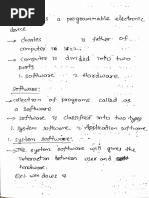 is a programmable electronic
device
→ charles is father of
computer is 1822.
→ computer is divided into two
parts
1. software 2. Hardware.
Software:-
→ collection of programs called as
a software.
→ software is classified into two types
1. system software 2. Application software.
1. system software:-
→ The system software will gives the
interaction between user and
hardware.
Ex:- windows 8